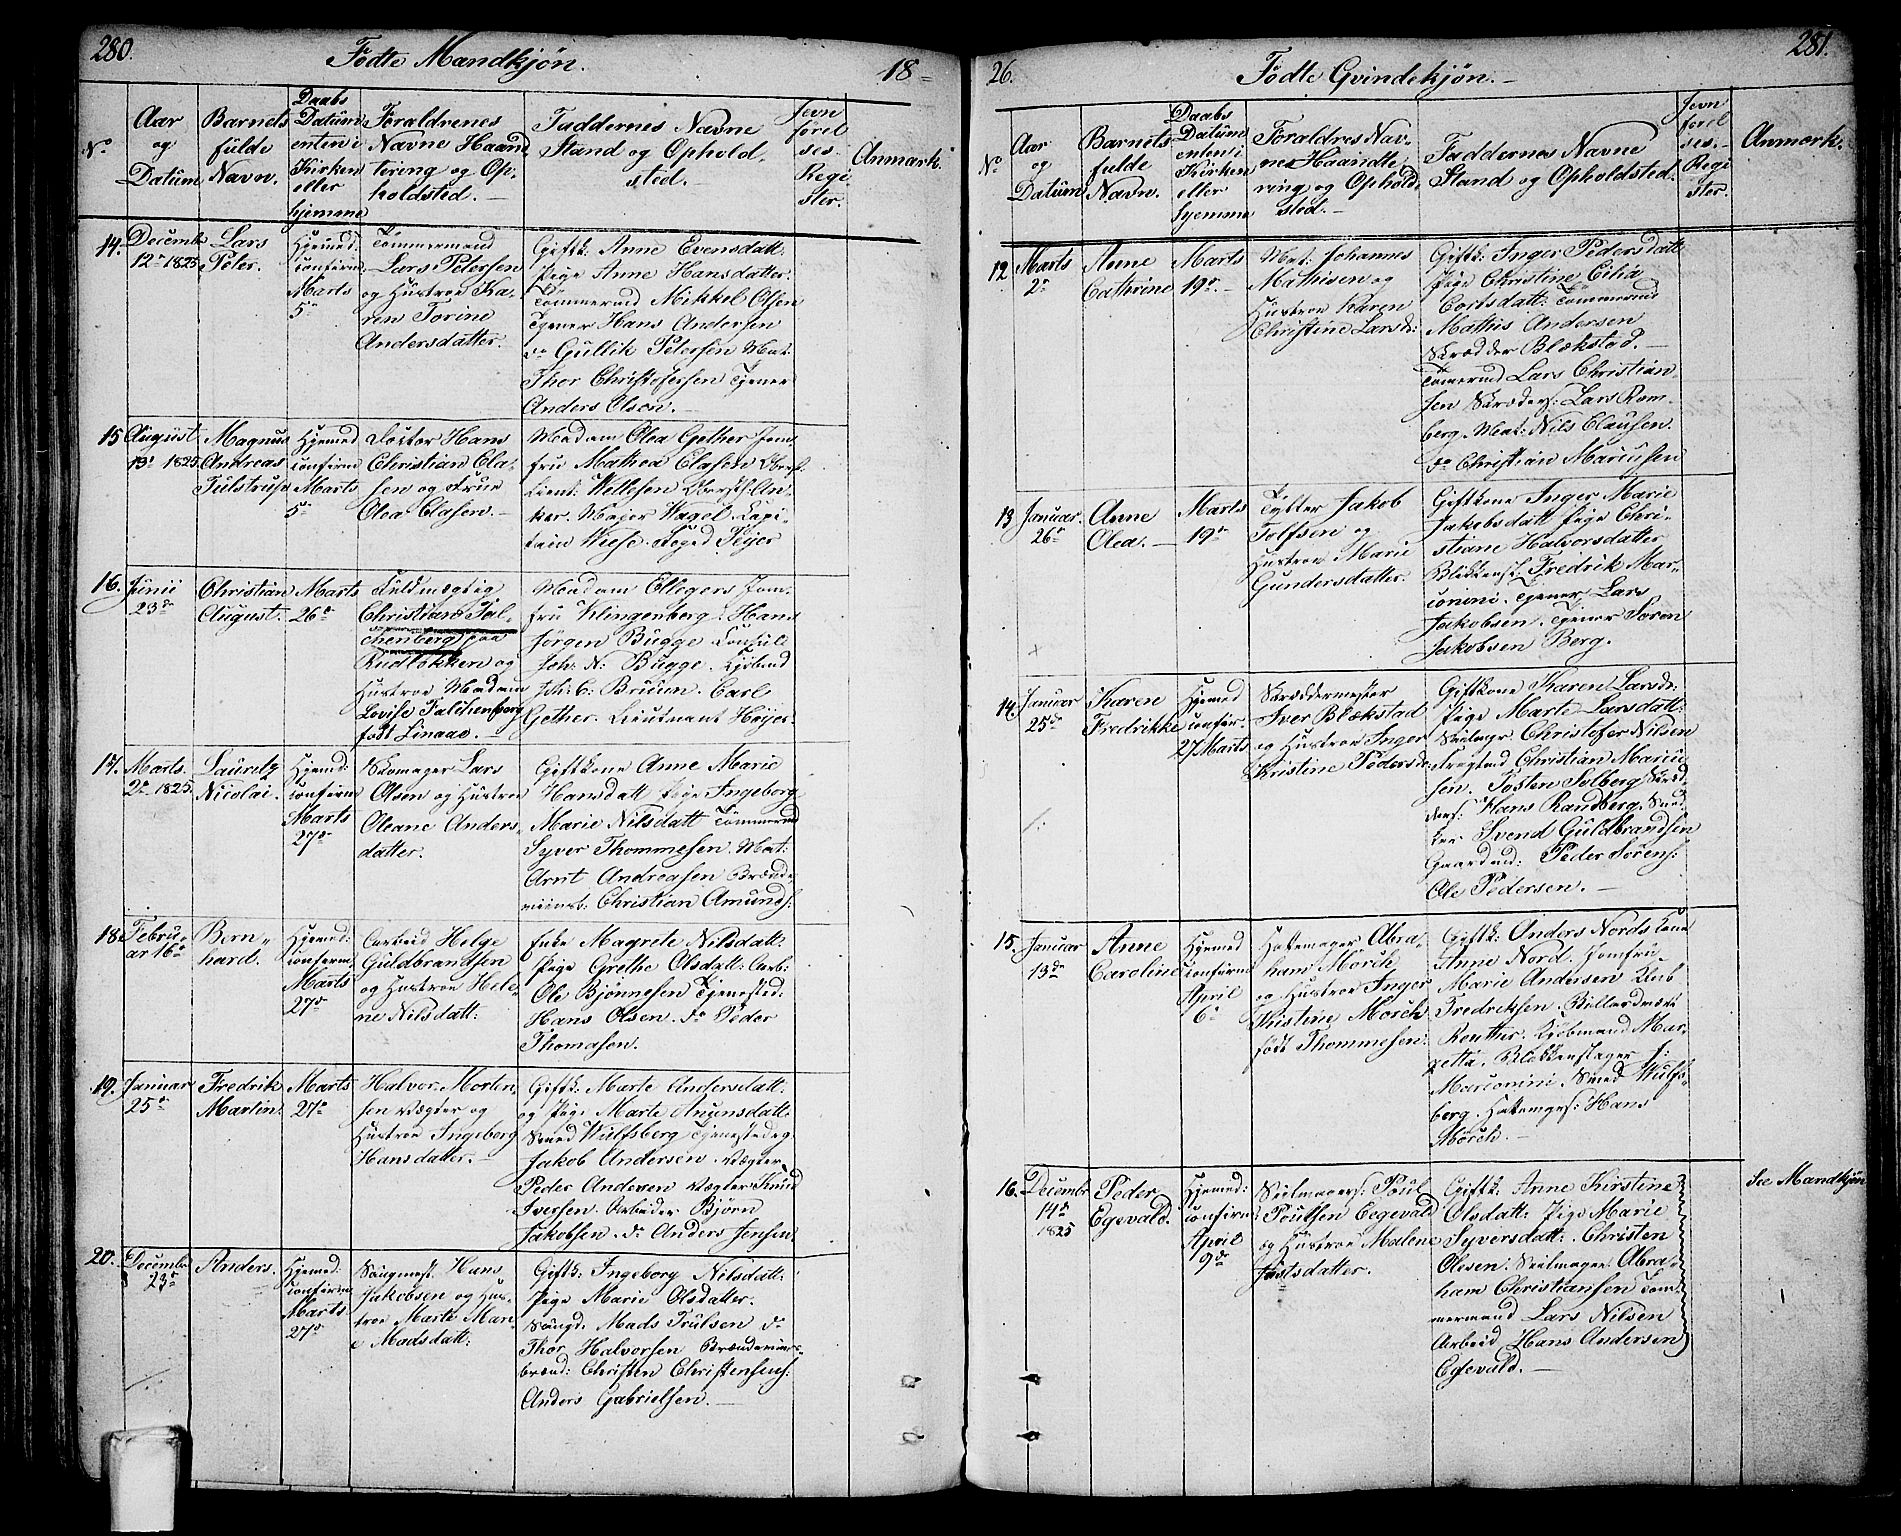 280.
Fødte Mandkjøn.
18-
No
Aar og Datum
Barnets fulde Navn.
Daabs Datum enten i Kirken eller hjemme
Foraldrenes Navne Haandtering og Opholdsted.
Faddernes Navne Stand og Opholdsted.
Jevnførelses-Register.
Anmærk.
14.
Decembr 12te 1825
Lars Peter.
Hjemmed: confirm Marts 5te
Tømmermand
Lars Petersen
og Hustroe Ka-
ren Torine
Andersdatter.
Giftk. Anne Evensdatt.
Pige Anne Hansdatter.
Tømmermd Mikkel Olsen
Tjener Hans Andersen
do Gullik Petersen Mat.
Thor Christofersen Tjener
Anders Olsen.
15
August 13de 1825.
Magnus Andreas Tulstrup
Hjemmed confirm Marts 5te
Doctor Hans
Christian Cla-
sen og Frue
Olea Clasen.
Madam Olea Gether Jom-
fru Mathea Clasen Oberst
Lieut: Wettesen Oberstl: An-
ker. Majer Wagel Capi-
tain Wiese. Foged Fejer
16.
Junii 23de
Christian August.
Marts 26de
Fuldmægtig
Christian Fal-
chenberg paa
Rudløkken og
Hustroe Madam
Lovise Falchenberg
født Linaae.
Madam Ellegers Jom-
fru Klingenberg. Hans
Jørgen Bugge Consul
Joh: N: Bugge. Kjøbmd
Joh: C: Bruun. Carl
Gether. Lieutnant Høyer.
17.
Marts 2de 1825.
Lauritz Nicolai.
Hjemmed: confirm Marts 27de
Skomager Lars
Olsen og Hustroe
Oleane Anders-
datter.
Giftkone Anne Marie
Hansdatt Pige Ingeborg
Marie Nilsdatt Tømmermd
Syver Thommesen. Mat:
Arnt Andreasen Brænde-
viinsb: Christian Amunds:
18.
Februar 16de
Bernhard.
Hjemmed: confirm Marts 27de
Arbeid Helge
Guldbrandsen
og Hustroe Hele-
ne Nilsdatt:
Enke Magrete Nilsdatt:
Pige Grethe Olsdatt: Arb:
Ole Bjønnesen Tjenested:
Hans Olsen. do Peder
Thomasen.
19.
Januar 25de
Fredrik Martin.
Marts 27de
Halvor Morten-
sen Vægter og
Hustroe Ingeborg
Hansdatter.
Giftk: Marte Andersdatt:
og Pige Marte Amunsdatt:
Smed Wulfsberg Tjenestedrg
Jakob Andersen. Vægter
Peder Andersen Vægter Knud
Iversen. Arbeider Bjørn
Jakobsen. do Anders Jensen
20.
Decembr 23de
Anders.
Hjemmed: confirm Marts 27de
Saugmest. Hans
Jakobsen og Hus-
troe Marte Mari-
e Madsdatt:
Giftk: Ingeborg Nilsdatt:
Pige Marie Olsdatter.
Saugd. Mads Trulsen do
Thor Halvorsen Brændeviins-
brænd: Christen Christensens:
Anders Gabrielsen.
26.
Fødte Qvindekjøn.
281.
No
Aar og Datum
Barnets fulde Navn.
Daabs Datum enten i Kirken eller hjemme
Foraldres Navne Haandtering og Opholdsted.
Faddernes Navne Stand og Opholdsted.
Jevnførelses-Register.
Anmærk.
12
Marts 2de
Anne Cathrine
Marts 19de
Mat: Johannes
Mathisen og
Hustroe Karen
Christine Larsd:
Giftk: Inger Pedersdatt
Pige Christine Cilia
Corlsdatt: Tømmermd
Mathis Andersen
Skrædder Blækstad.
Tømermd Lars Christian-
sen Skræders: Lars Rom-
berg. Mat: Nils Clausen.
do Christian Marcusen
13
Januar. 26de
Anne Olea.
Marts 19de
Jakob
Tolfsen og
Hustroe Marie
Gundersdatter.
Giftkone Inger Marie
Jakobsdatt Pige Chri-
stiane Halvorsdatter
Blikkensl. Fredrik Mar-
conini. Tjener Lars
Jakobsen. Tjener Søren
Jakobsen Berg.
14.
Januar 25de
Karen Fredrikke
Hjemmed confir. 27 Marts
Skræddermester
Iver Blækstad
og Hustroe Inger
Kristine Pedersd:
Giftkone Karen Larsd:
Pige Marte Larsdatt:
Christofer Nilsen
Christian Mariu-
sen. Tosten Solberg Skræd-
ders: Hans Randberg. Sned-
ker Svend Guldbrandsen
Gaardmd: Peder Sørens:
Ole Pedersen.
15.
Januar 13de
Anne Caroline
Hjemmed confirm April 6te
Hattemager Abra-
ham Mørch
og Hustroe Inger
Kristine Mørch
født Thommesen.
Giftk: Anders Nords Kone
Anne Nord. Jomfru
Marie Andersen
Fredriksen.
Reuther. Kjøbmand Mar-
getta. Blikkenslager J:
Marconini. Smed Wulfs-
berg. Hattemgs: Hans
Mørch.
16.
Decembr 14de 1825
Peder Egevald.
Hjemmed: confirm April 9de
Seilmagers: Poul
Poulsen Egevald
og Hustroe Malene
Jostsdatter.
Giftk: Anne Kirstine
Olsdatt: Pige Marie
Syversdatt: Christen
Olesen. Seilmager Abra-
ham Christiansen Tøm-
mermand Lars Nilsen
Arbeid Hans Andersen
Egevald.
See Mandkjøn